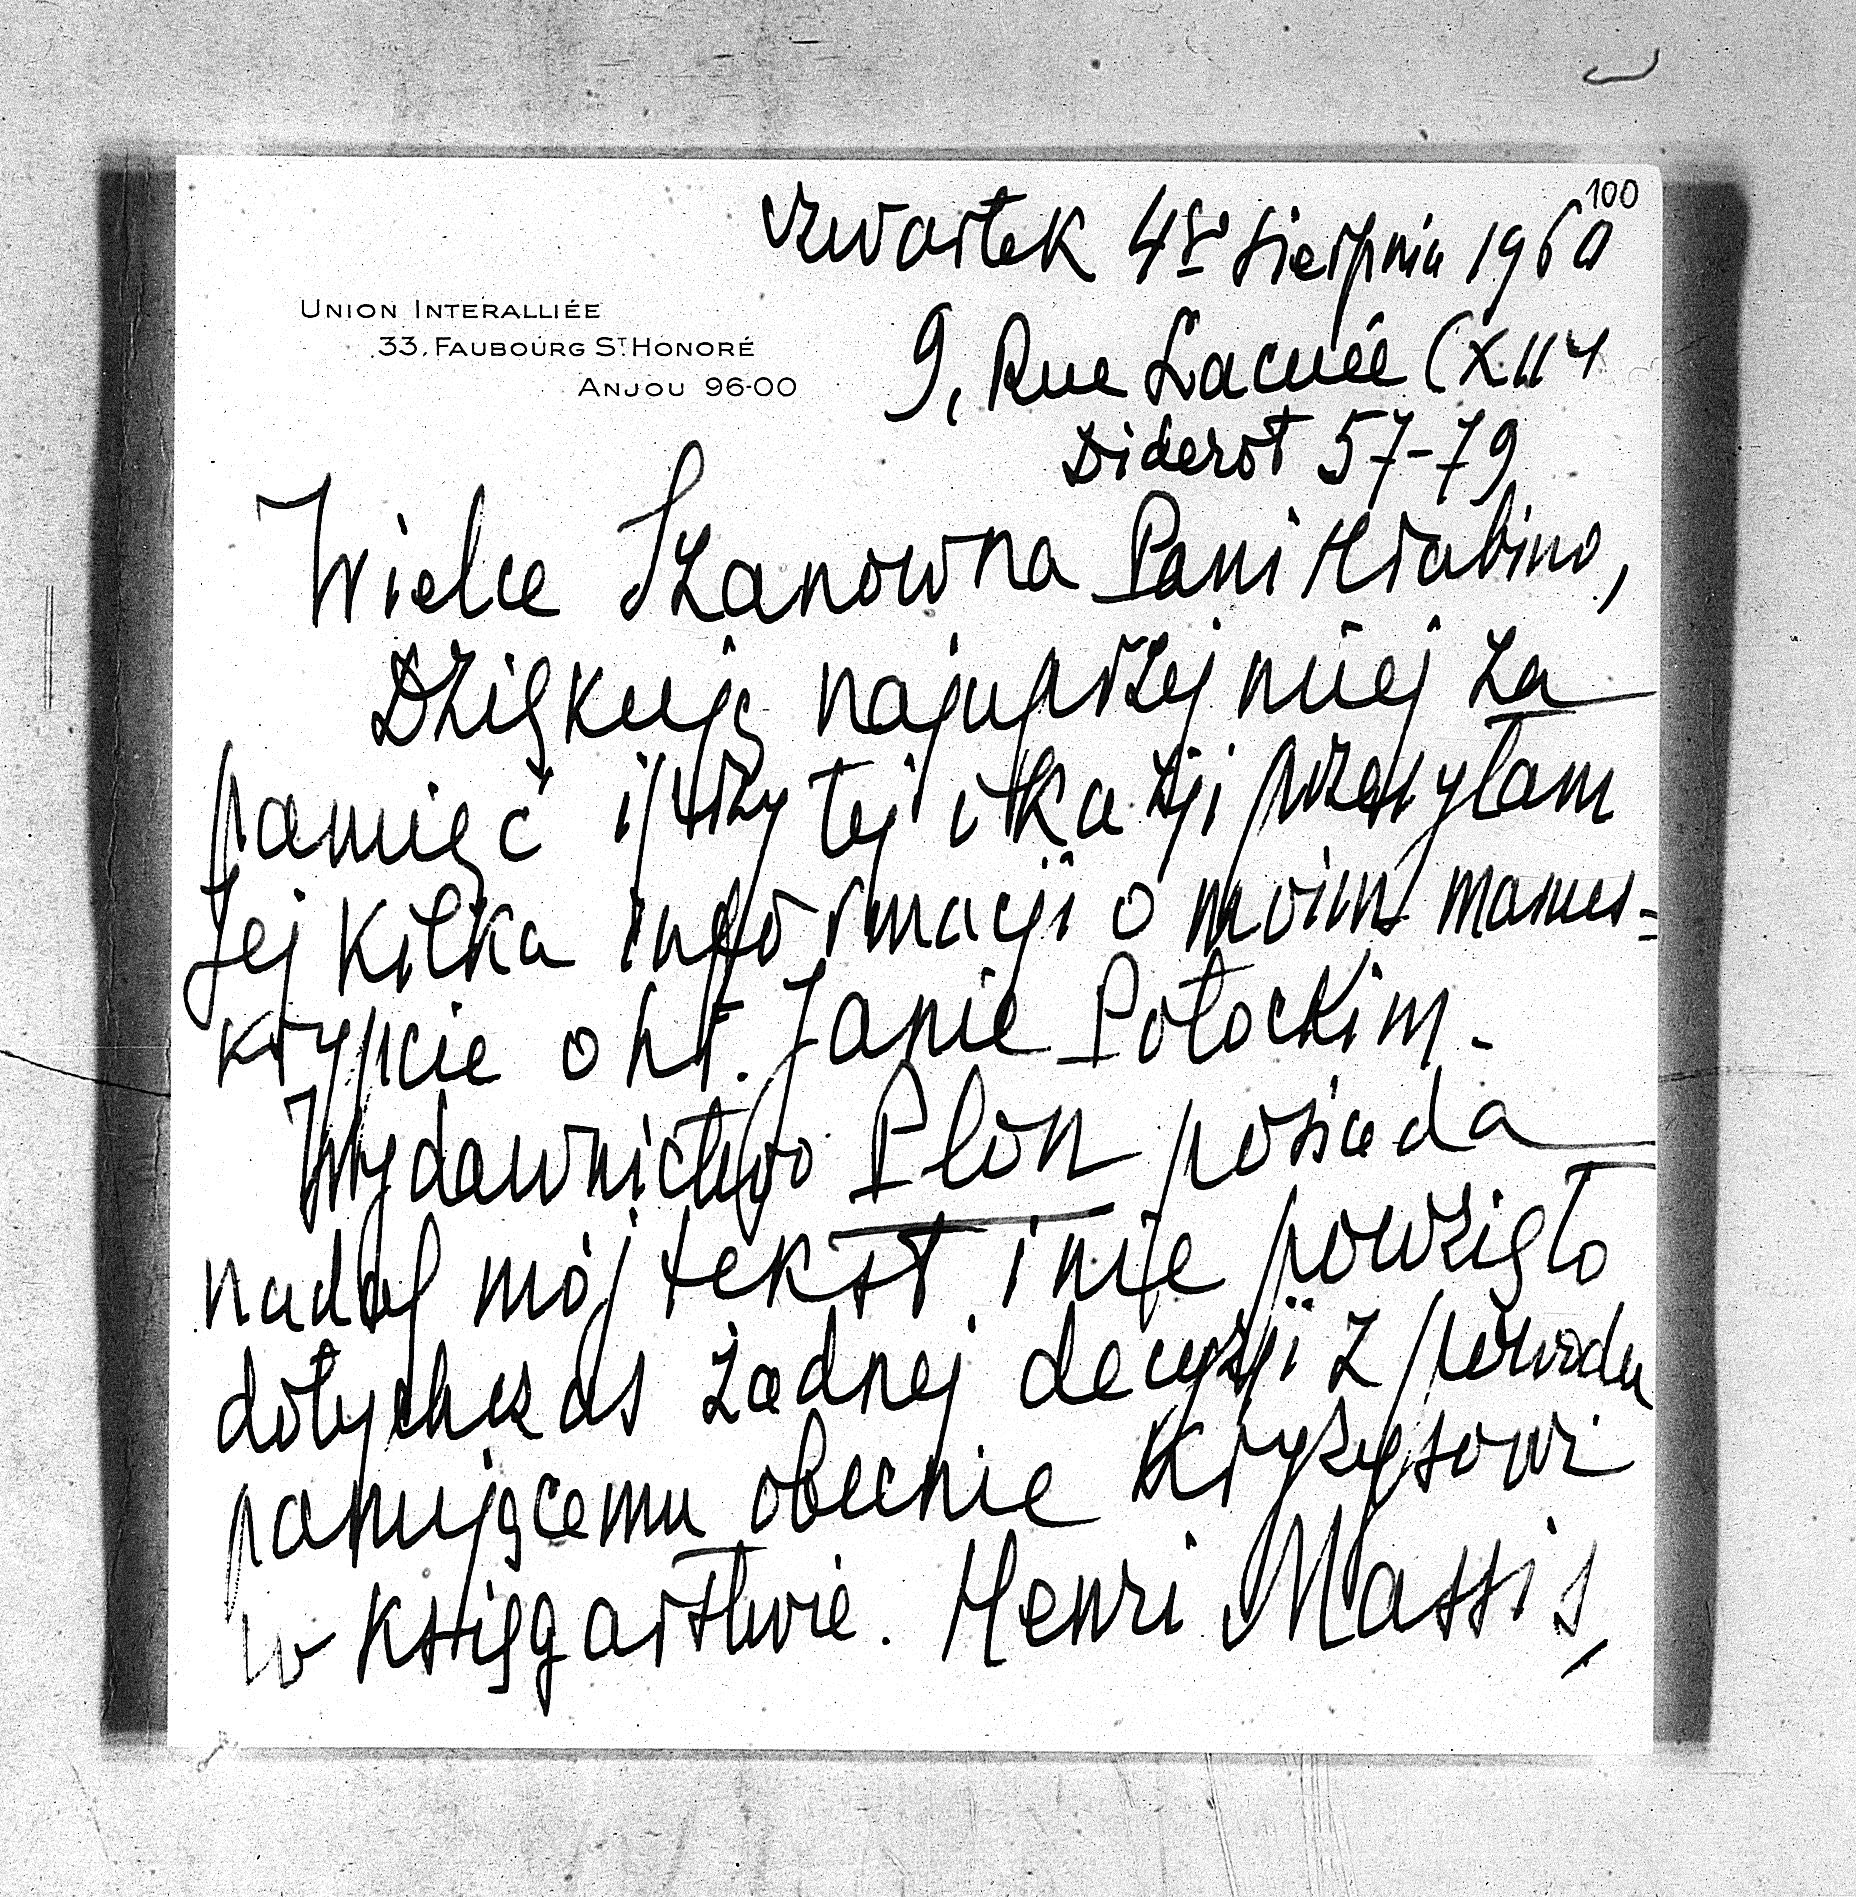 100
czwartek 4go sierpnia 1960
UNION INTERALLIÉE
33, FAUBOURG ST. HONORÉ
ANJOU 96-00
9, Rue Lacuée (XII
Diderot 57-79
Wielce Szanowna Pani Hrabino,
Dziękuję najuprzejmiej za
pamięć i przy tej okazji przesyłam
Jej kilka informacji o moim manus=
krypcie o hr. Janie Potockim.
Wydawnictwo Plon posiada
nadal mój tekst i nie powzięło
dotychczas żadnej decyzji z powodu
panującemu obecnie kryzysowi
w księgarstwie. Henri Massis,